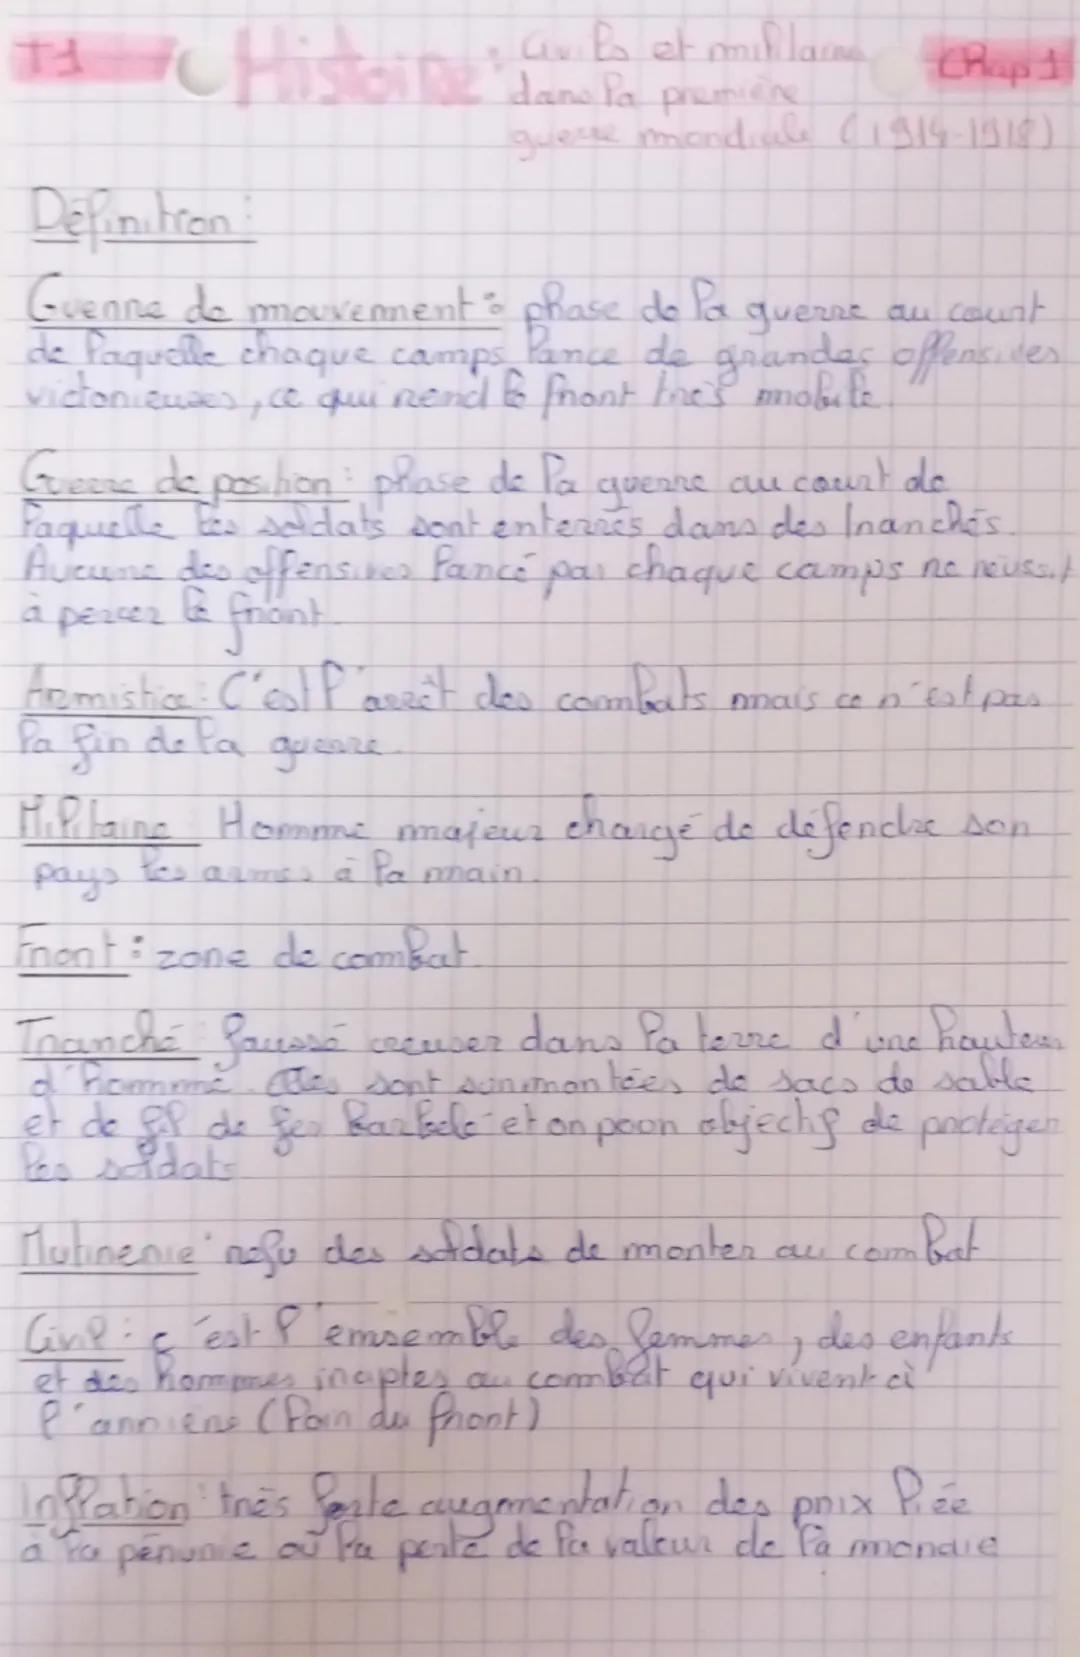 T1 Histoire : Civils et militaires Chap 1
dans la première
guerre mondiale (1914-1918)
Définition :
Guerre de mouvement : phase de la guerre au court
de laquelle chaque camps lance de grandes offensives
victorieuses, ce qui rend le front très mobile.
Guerre de position : phase de la guerre au court de
laquelle les soldats sont enterrés dans des tranchés.
Aucune des offensives lancé par chaque camps ne réussit
à percer le front.
Armistice : C'est l'arrêt des combats mais ce n'est pas
la fin de la guerre.
Militaire Homme majeur chargé de défendre son
pays les armes à la main.
Front : zone de combat.
Tranché : faussé creuser dans la terre d'une hauteur
d'homme. Elles sont surmontées de sacs de sable
et de fil de fer barbelé et on pour objectif de protéger
les soldats
Mutinerie : refu des soldats de monter au combat
Civil : c'est l'emsemble des femmes, des enfants
et des hommes inaptes au combat qui vivent à
l'arrière (loin du front)
Inflation : très forte augmentation des prix liée
à la pénurie où la perte de la valeur de la monaie